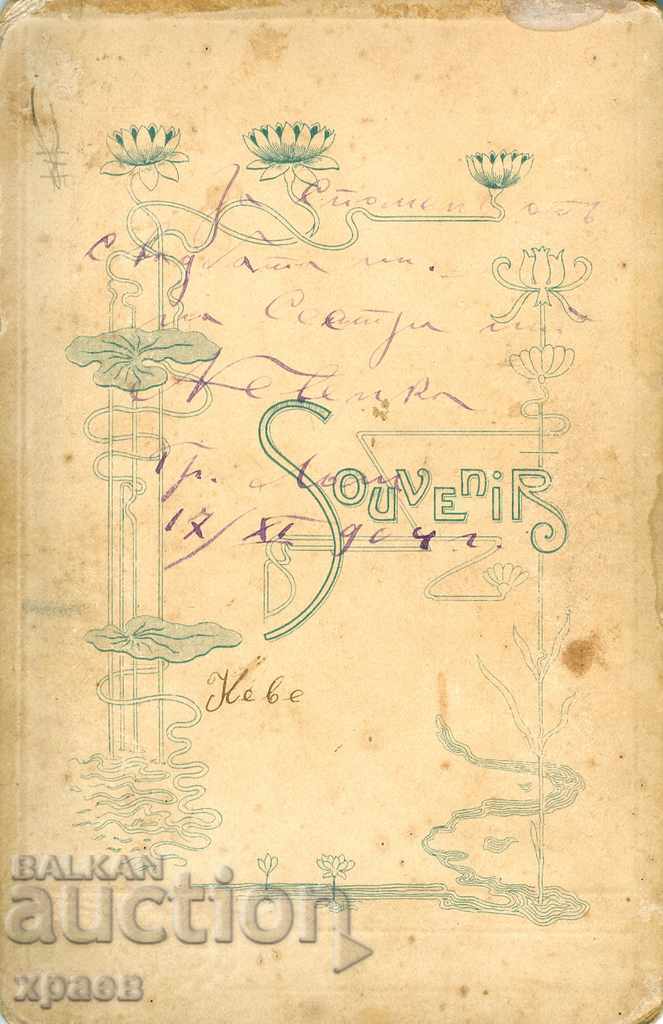 За Споменъ отъ
свадбата ми.
на Сестра ми
Невенка
Гр. Лом
17/XI 904 г.
SOUVENIR
Неве
BALKAN
auction
храов